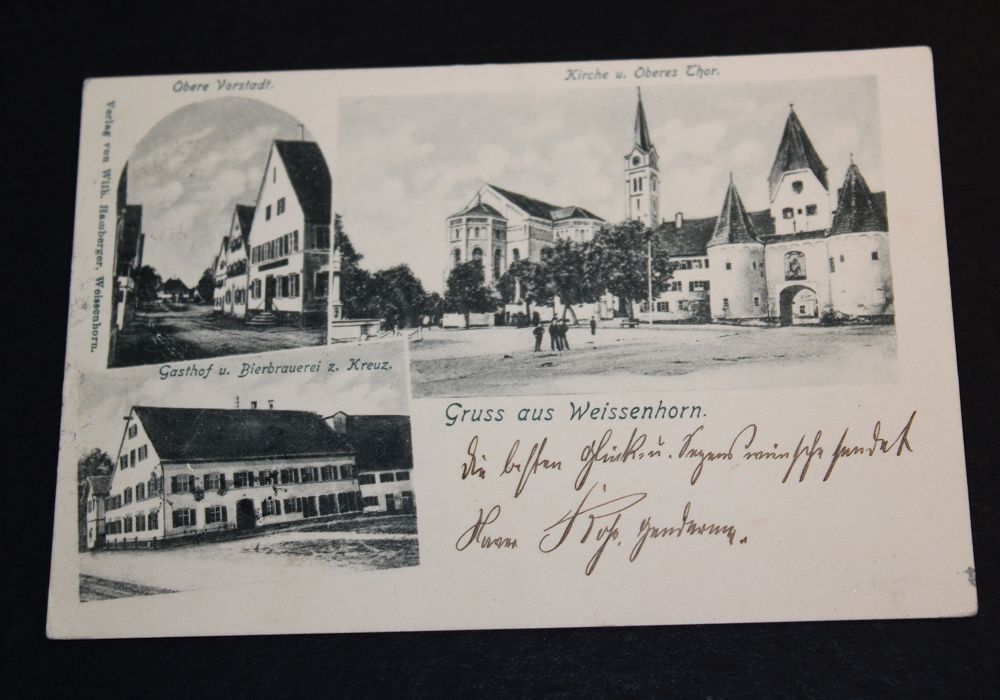 Obere Vorstadt.
Kirche u. Oberes Thor.
Verlag von Wilh. Hamberger, Weissenhorn.
Gasthof u. Bierbrauerei z. Kreuz.
Gruss aus Weissenhorn.
die besten Glück- u. Segenswünsche sendet
Xaver